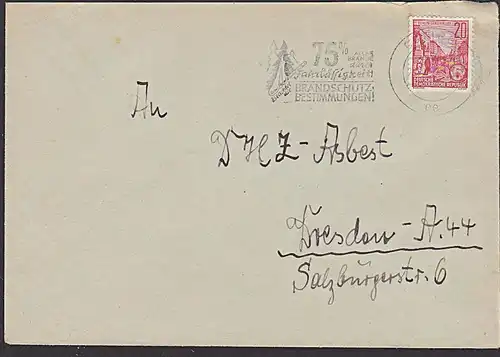 75% ALLER
BRÄNDE
durch
Fahrlässigkeit!
BRANDSCHUTZ-
BESTIMMUNGEN!
20
DEUTSCHE
DEMOKRATISCHE REPUBLIK
An
DHZ-Asbest
Dresden-A.44
Salzburgerstr. 6